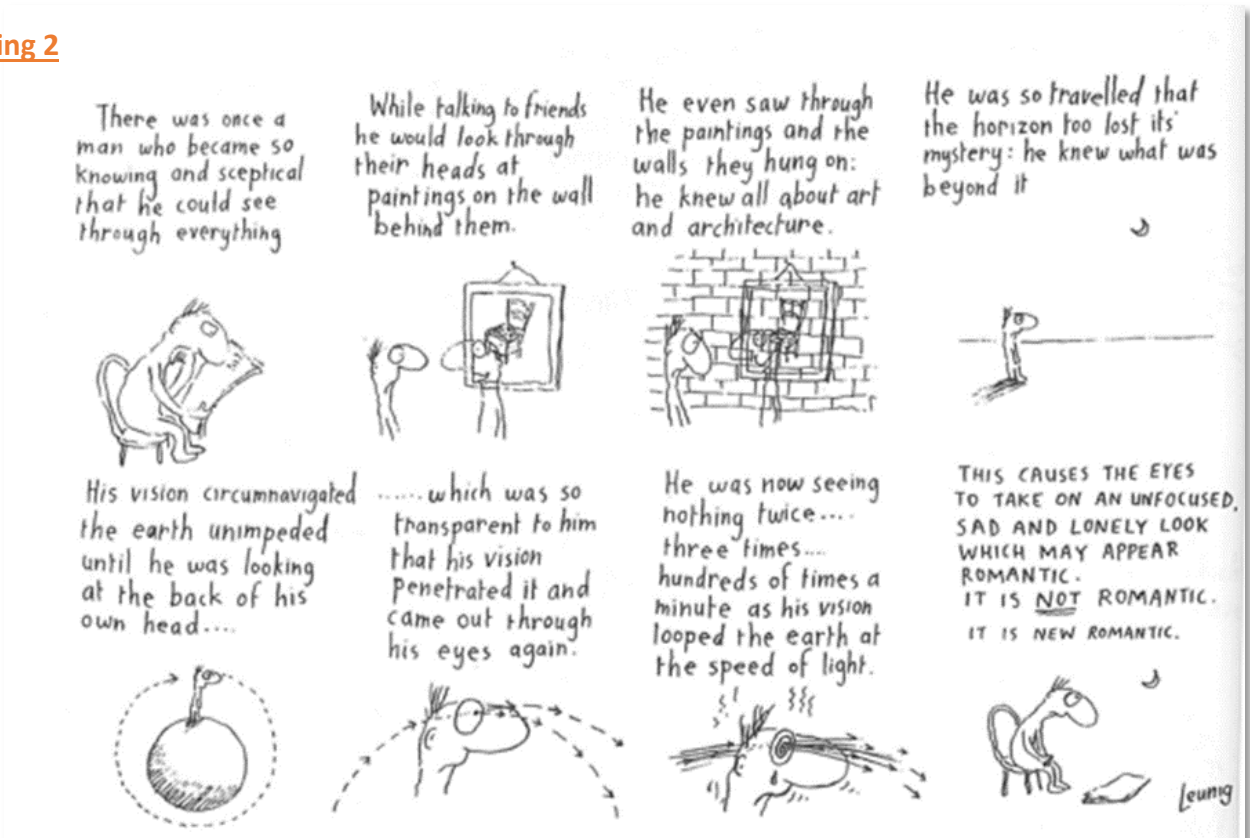 ing 2
There was once a
man who became so
knowing and sceptical
that he could see
through everything
While talking to friends
he would look through
their heads at
paintings on the wall
behind them.
He even saw through
the paintings and the
walls they hung on:
he knew all about art
and architecture.
He was so travelled that
the horizon too lost its
mystery: he knew what was
beyond it
His vision circumnavigated
the earth unimpeded
until he was looking
at the back of his
own head....
......which was so
transparent to him
that his vision
penetrated it and
came out through
his eyes again.
He was now seeing
nothing twice....
three times....
hundreds of times a
minute as his vision
looped the earth at
the speed of light.
THIS CAUSES THE EYES
TO TAKE ON AN UNFOCUSED,
SAD AND LONELY LOOK
WHICH MAY APPEAR
ROMANTIC.
IT IS NOT ROMANTIC.
IT IS NEW ROMANTIC.
Leunig